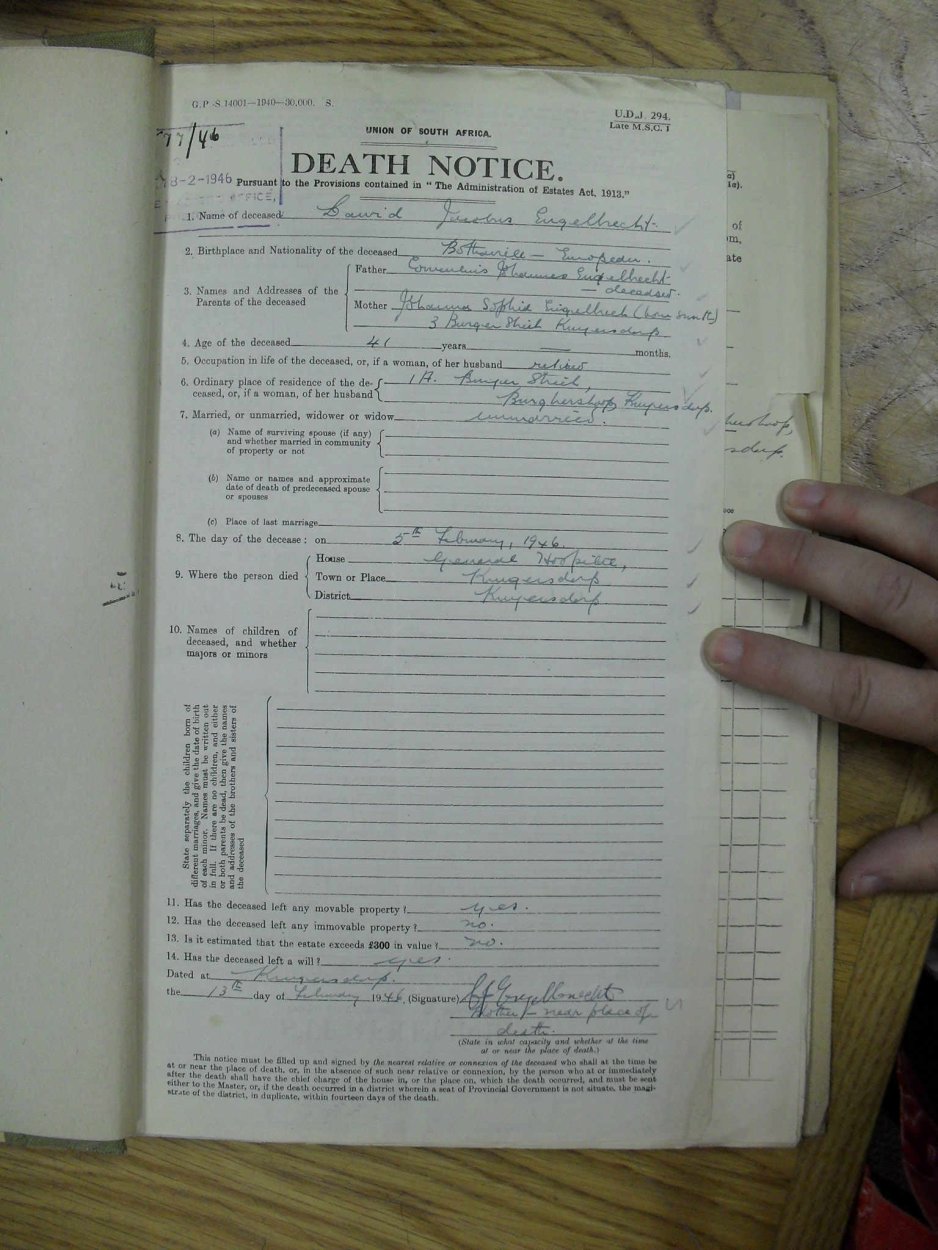 G.P.-S.14001—1940—30,000. S.
U.D.J. 294.
Late M.S.C. 1
UNION OF SOUTH AFRICA.
77/46
DEATH NOTICE.
8-2-1946
Pursuant to the Provisions contained in "The Administration of Estates Act, 1913."
OFFICE,
1. Name of deceased Dawid Jacobus Engelbrecht.
2. Birthplace and Nationality of the deceased Bothaville — European.
3. Names and Addresses of the Parents of the deceased
Father Johannes Engelbrecht
— deceased.
Mother Johanna Sophia Engelbrecht (born Smith)
3 Burger Street Krugersdorp
4. Age of the deceased 41 years — months.
5. Occupation in life of the deceased, or, if a woman, of her husband retired
6. Ordinary place of residence of the de-
ceased, or, if a woman, of her husband
1A. Burger Street,
Burghershoop, Krugersdorp.
7. Married, or unmarried, widower or widow unmarried.
(a) Name of surviving spouse (if any)
and whether married in community
of property or not
(b) Name or names and approximate
date of death of predeceased spouse
or spouses
(c) Place of last marriage
8. The day of the decease: on 5th February, 1946.
9. Where the person died
House General Hospital,
Town or Place Krugersdorp
District Krugersdorp
10. Names of children of
deceased, and whether
majors or minors
State separately the children born of
different marriages, and give the date of birth
of each minor. Names must be written out
in full. If there are no children, and either
or both parents be dead, then give the names
and addresses of the brothers and sisters of
the deceased
11. Has the deceased left any movable property? yes.
12. Has the deceased left any immovable property? no.
13. Is it estimated that the estate exceeds £300 in value? no.
14. Has the deceased left a will? yes.
Dated at Krugersdorp.
the 13th day of February 1946, (Signature) Engelbrecht
Mother — near place of
death.
(State in what capacity and whether at the time
at or near the place of death.)
This notice must be filled up and signed by the nearest relative or connexion of the deceased who shall at the time be
at or near the place of death, or, in the absence of such near relative or connexion, by the person who at or immediately
after the death shall have the chief charge of the house in, or the place on, which the death occurred, and must be sent
either to the Master, or, if the death occurred in a district wherein a seat of Provincial Government is not situate, the magi-
strate of the district, in duplicate, within fourteen days of the death.